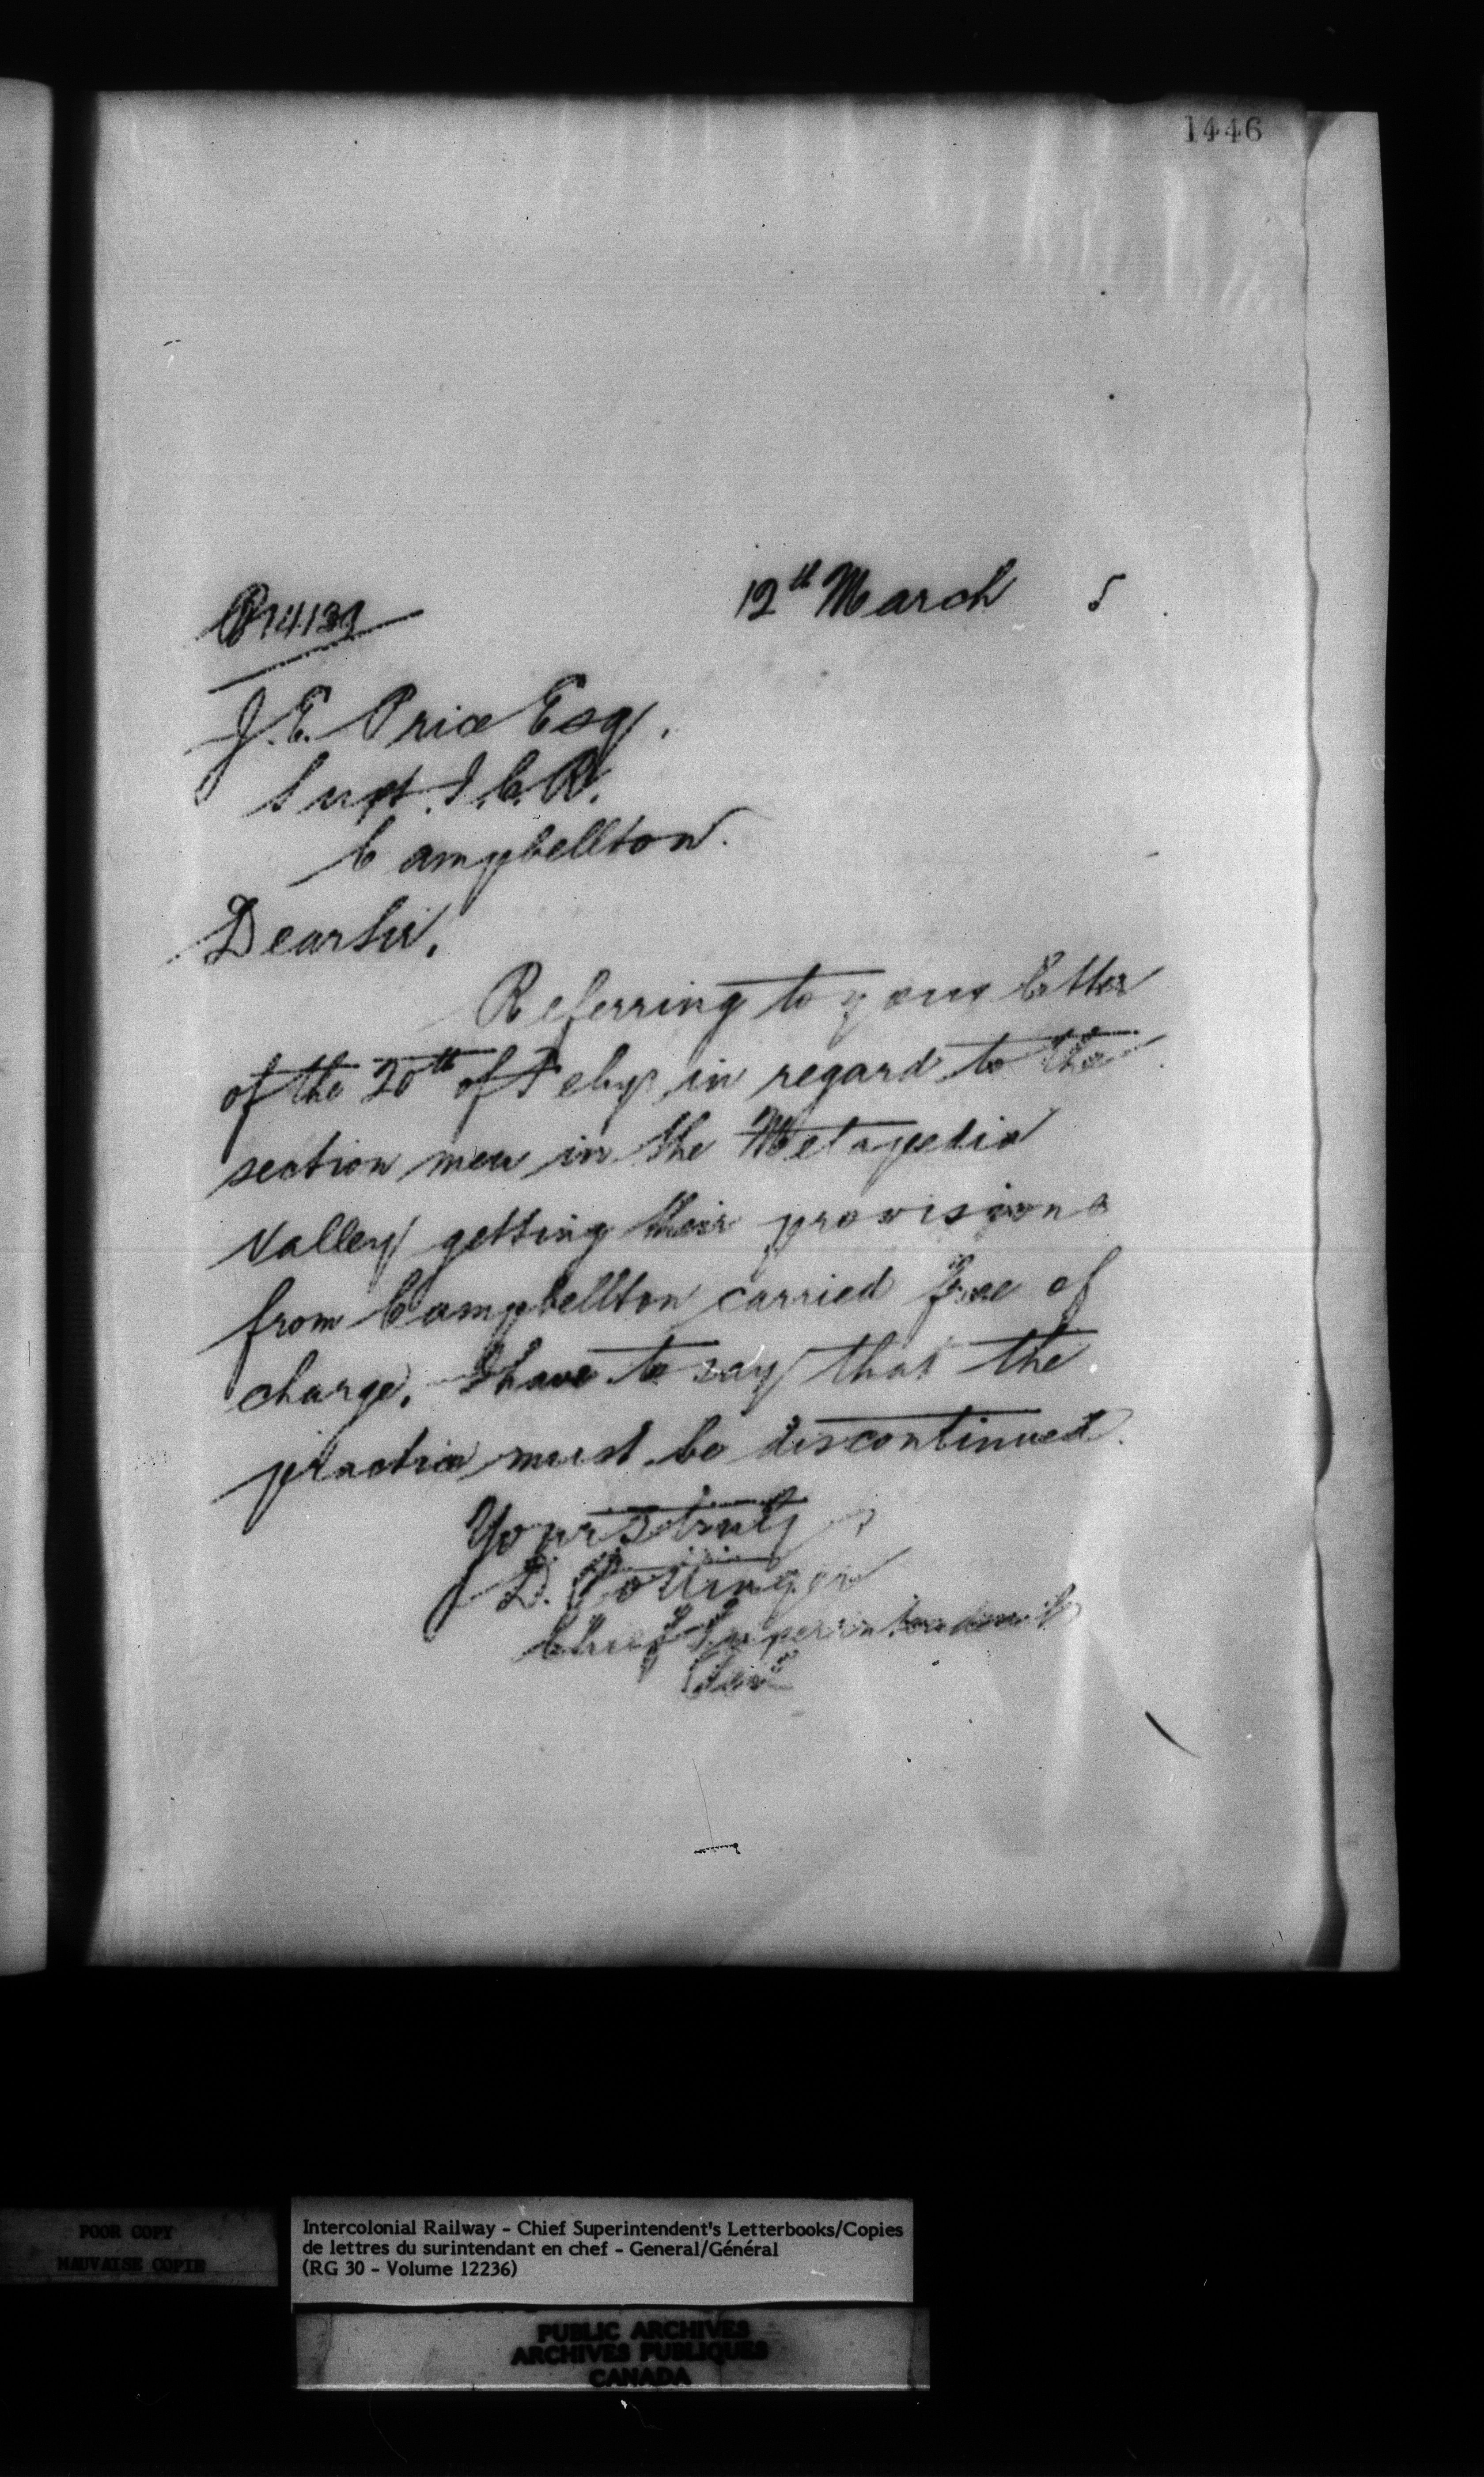 1446
12th March 5
J. E. Price Esq.
Supt. I. C. R.
Campbellton.
Dear Sir,
Referring to your letter
of the 20th of Feby in regard to the
section men in the Metapedia
Valley getting their provisions
from Campbellton carried free of
charge, I have to say that the
practice must be discontinued.
Yours truly
D. Pottinger
Chief Superintendent
POOR COPY
MAUVAISE COPIE
Intercolonial Railway - Chief Superintendent's Letterbooks/Copies
de lettres du surintendant en chef - General/Général
(RG 30 - Volume 12236)
PUBLIC ARCHIVES
ARCHIVES PUBLIQUES
CANADA